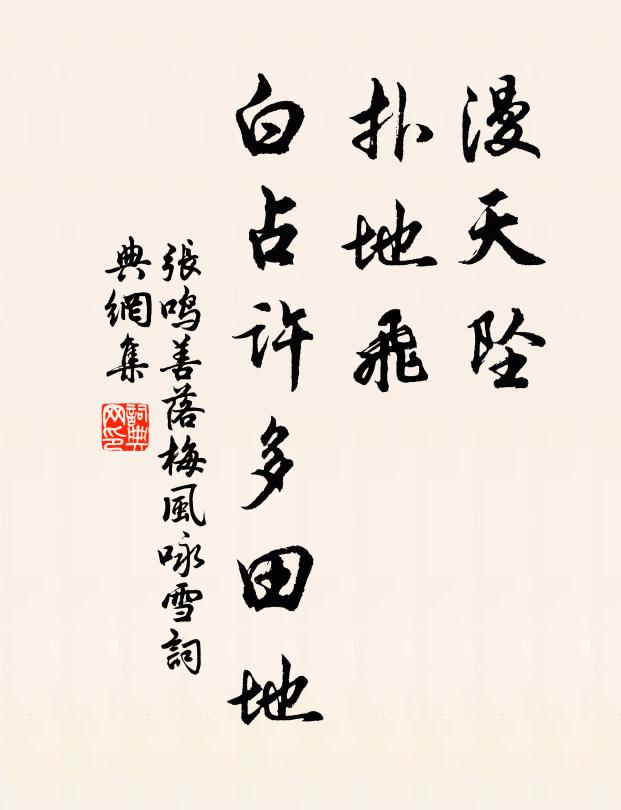 漫天坠
扑地飛
白占许多田地
張鸣善落梅風咏雪詞
典網集
詞典
网印